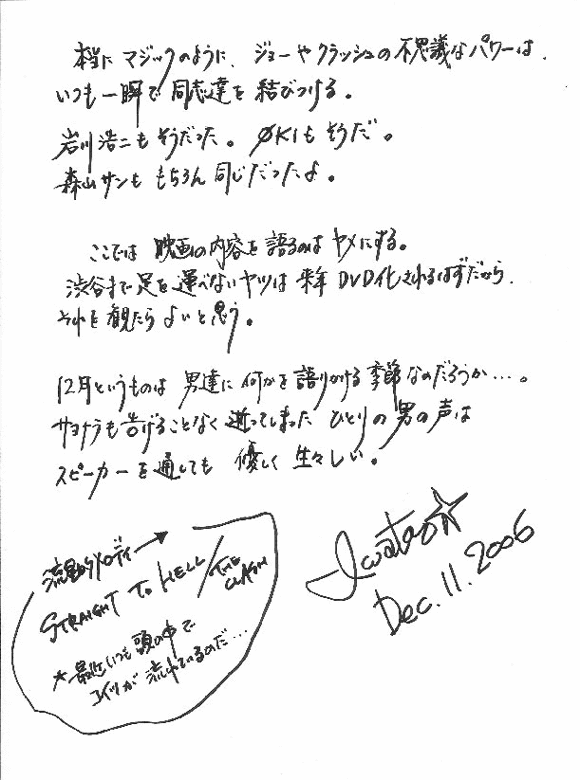 本当に マジックのように、ジョーや クラッシュの 不思議な パワーは、
いつも 一瞬で 同志達を 結びつける。
岩川浩二も そうだった。ØKIも そうだ。
森山サンも もちろん 同じだったよ。
ここでは 映画の内容を 語るのは ヤメにする。
渋谷まで 足を 運べない ヤツは 来年 DVD化されるはずだから、
それを 観たら よいと 思う。
12月というものは 男達に 何かを 語りかける 季節なのだろうか…。
サヨナラも 告げることなく 逝ってしまった ひとりの 男の 声は
スピーカーを 通しても 優しく 生々しい。
メロディー→
STRAIGHT TO HELL/THE CLASH
*最近いつも 頭の中で
コイツが 流れているのだ…
Dec. 11. 2006